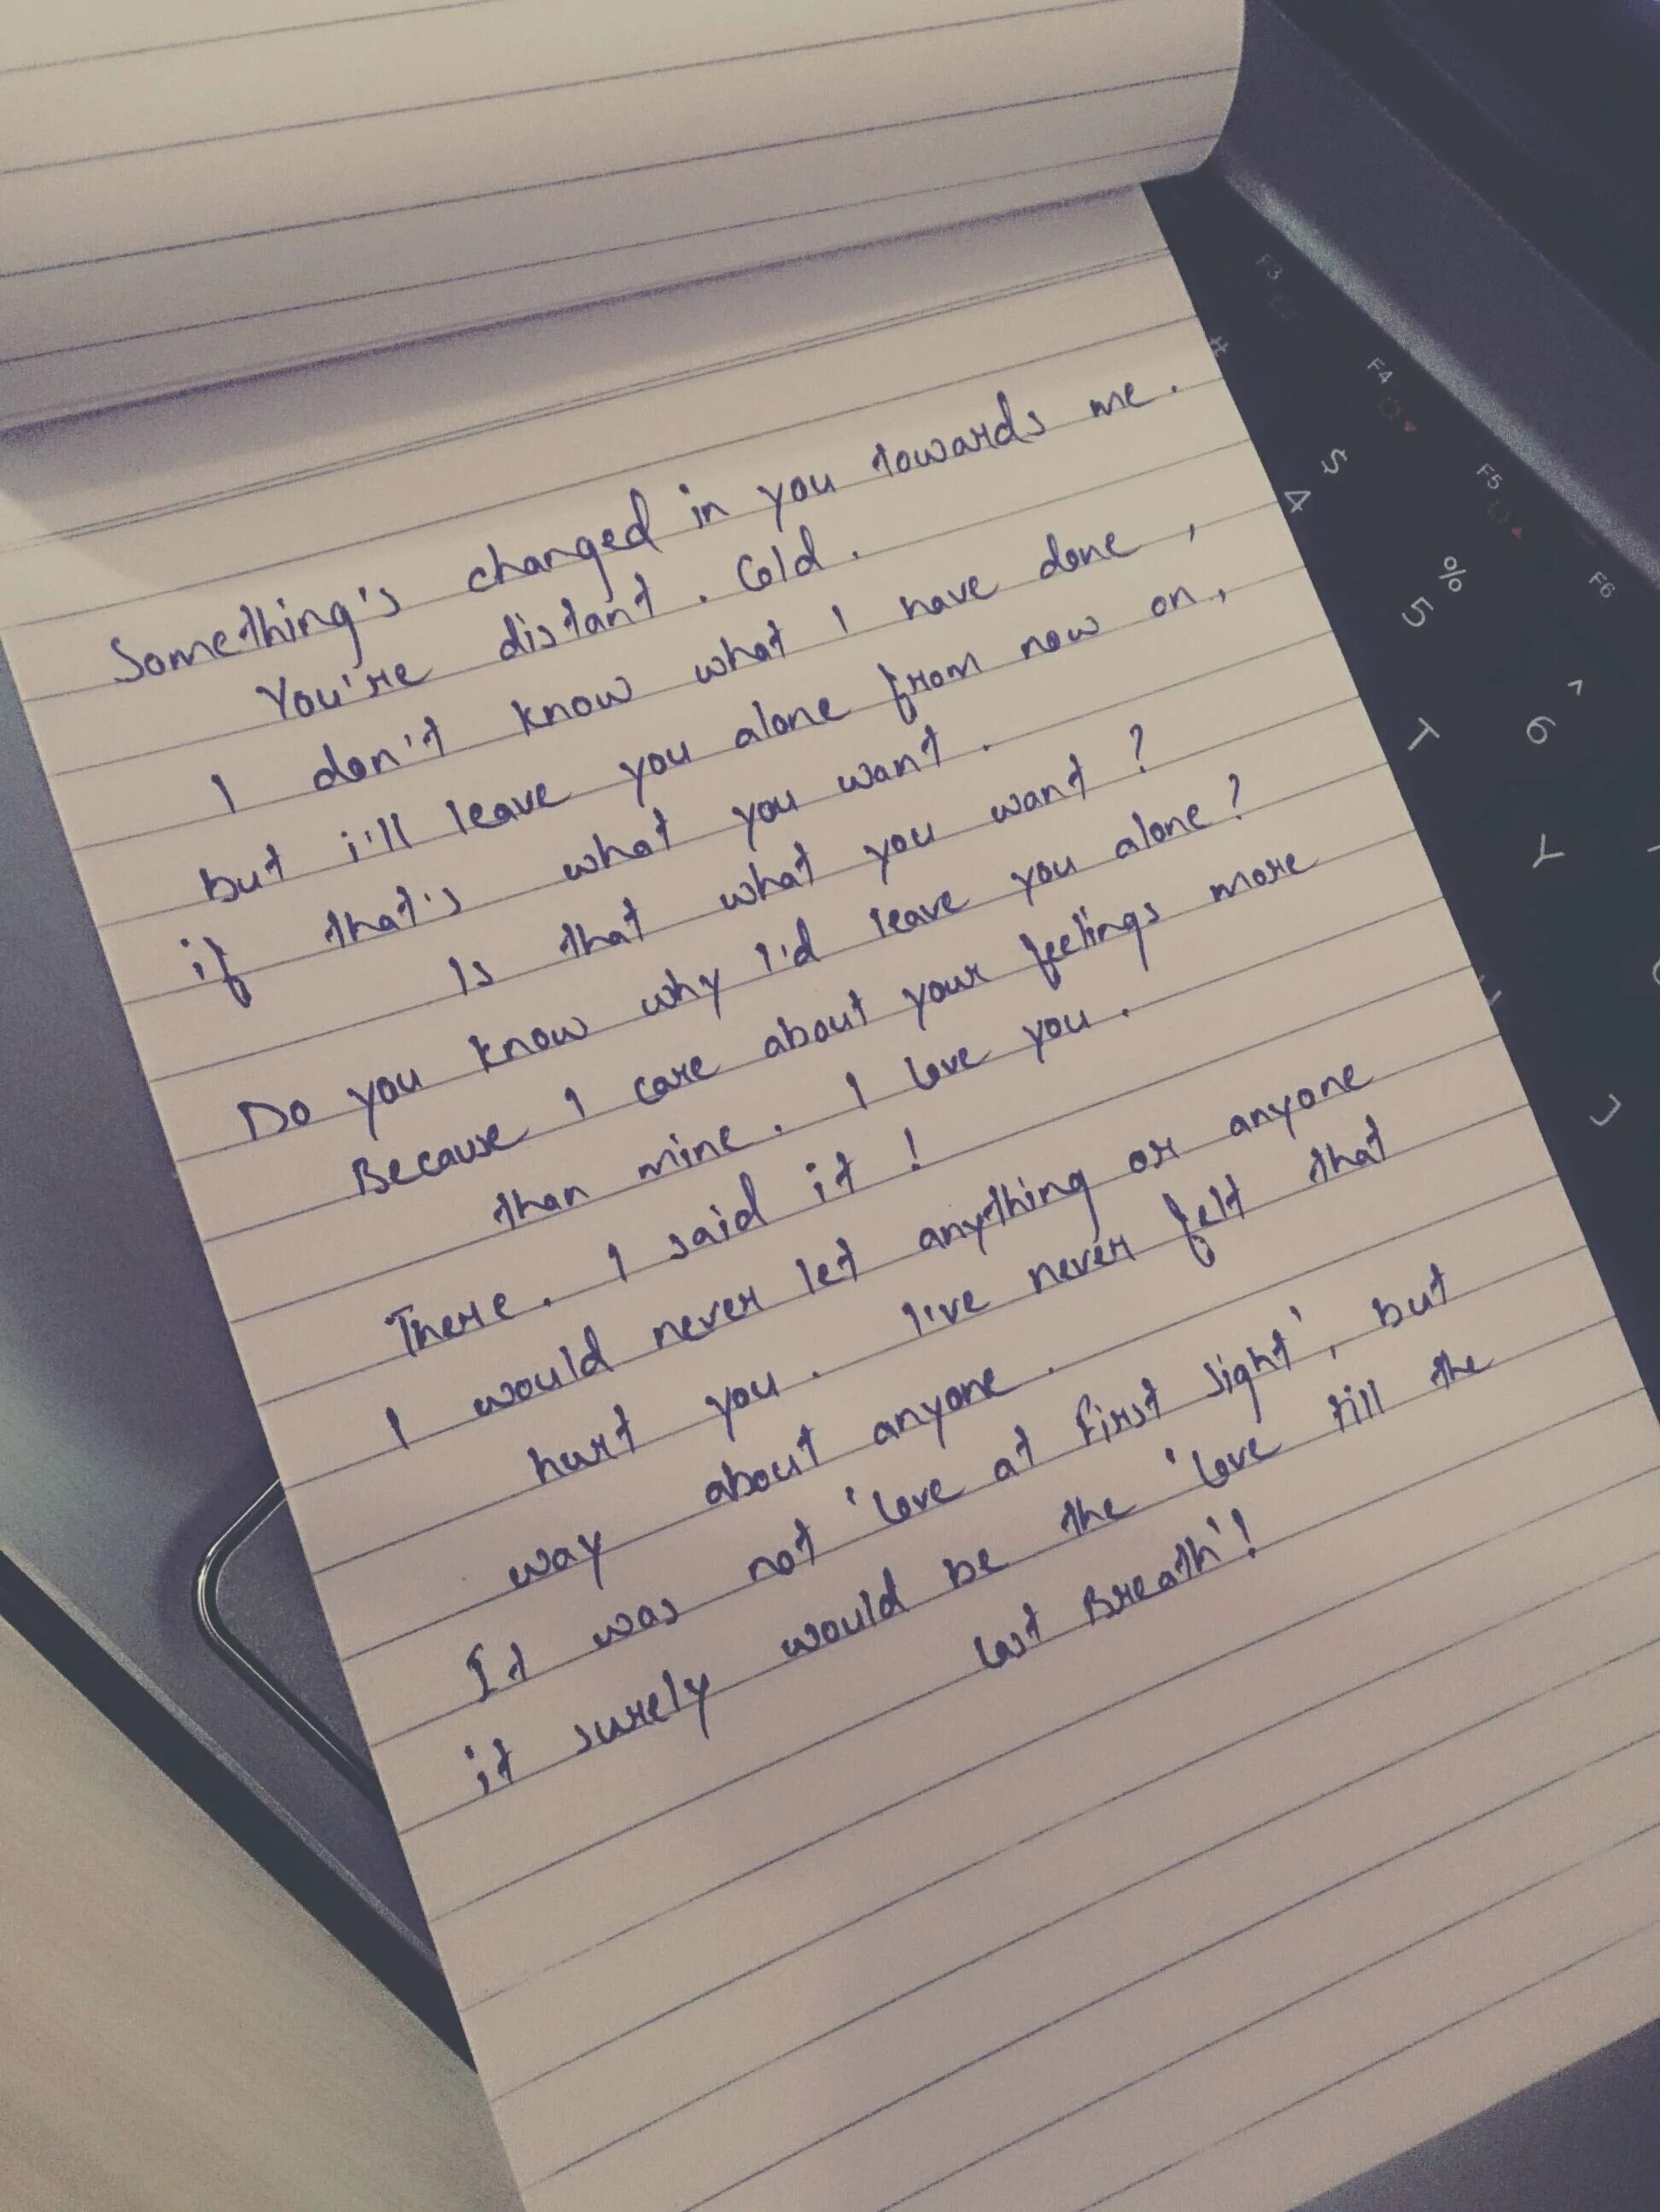 Something's changed in you towards me.
You're distant. Cold.
I don't know what I have done,
but i'll leave you alone from now on,
if that's what you want.
Is that what you want?
Do you know why I'd leave you alone?
Because I care about your feelings more
than mine. I love you.
There. I said it!
I would never let anything or anyone
hurt you. I've never felt that
way about anyone.
It was not 'love at First sight', but
it surely would be the 'love till the
last Breath'!
F3
#
F4
$
4
F5
%
5
F6
^
6
T
Y
J